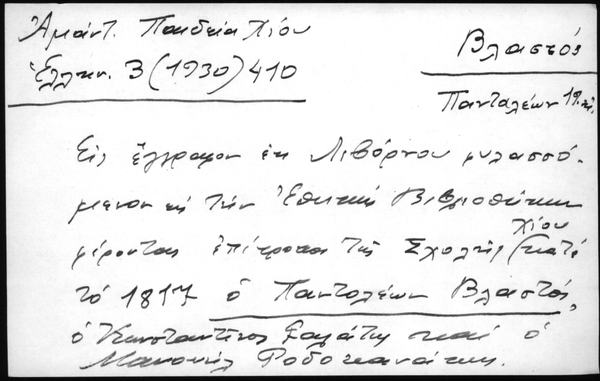 Ἀμάντ. Παιδεία Χίου
Ἑλλην. 3 (1930) 410
Βλαστός
Πανταλέων 19.
Εἰς ἔγγραφον ἐκ Λιβόρνου φυλασσό-
μενον εἰς τὴν Ἐθνικὴν Βιβλιοθήκην
Χίου
φέρονται ἐπίτροποι τῆς Σχολῆς (κατὰ
τὸ 1817 ὁ Πανταλέων Βλαστός,
ὁ Κωνσταντῖνος Σαλάτης καὶ ὁ
Μανουὴλ Ροδοκανάκης.